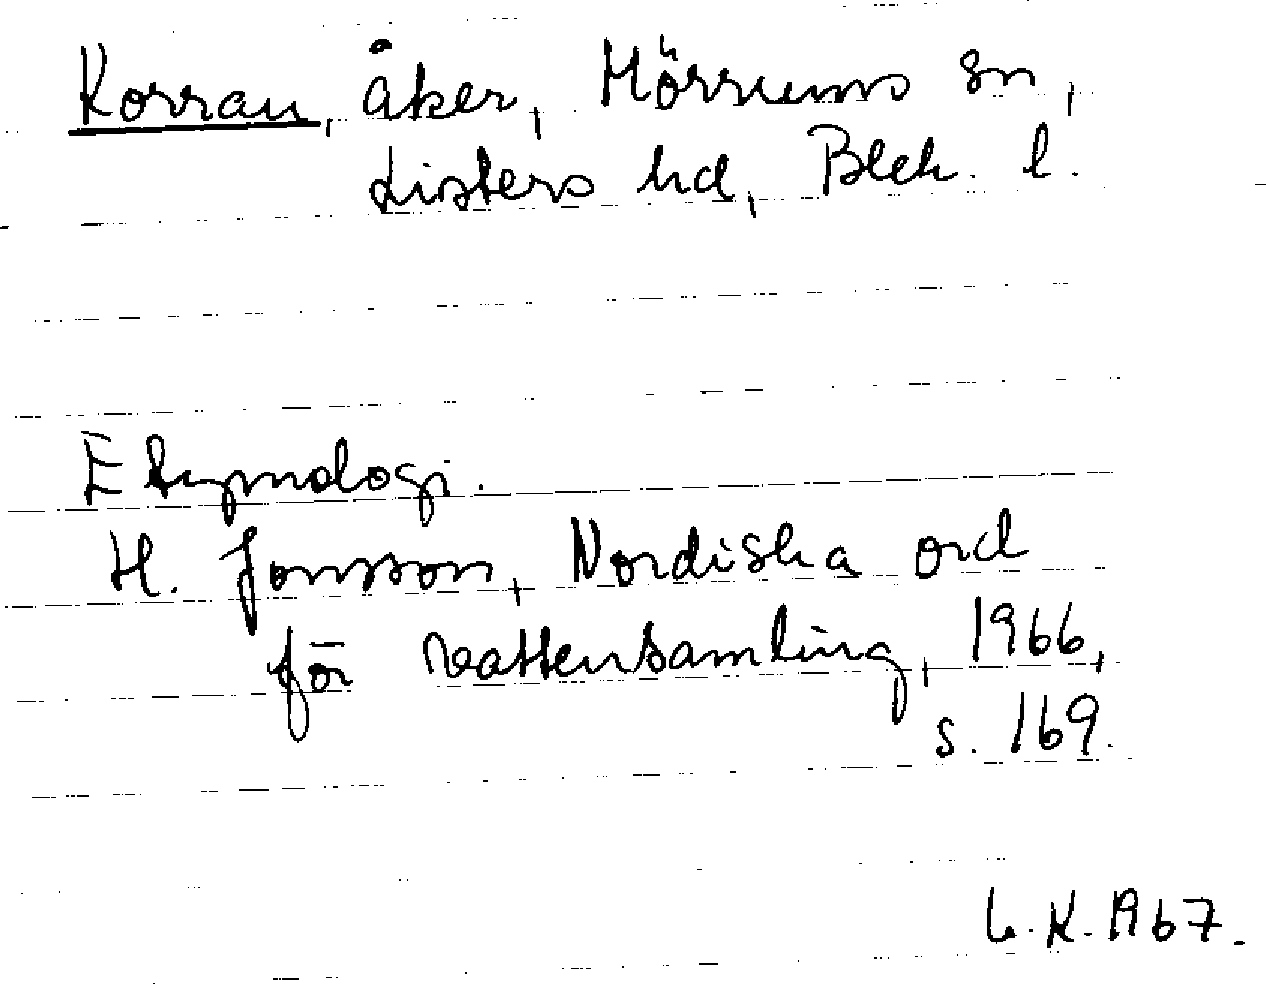 Korran, åker, Mörrums sn,
Listers hd, Blek. l.
Etymologi.
H. Jonsson, Nordiska ord
för vattensamling, 1966,
s. 169.
L.K. 1967.